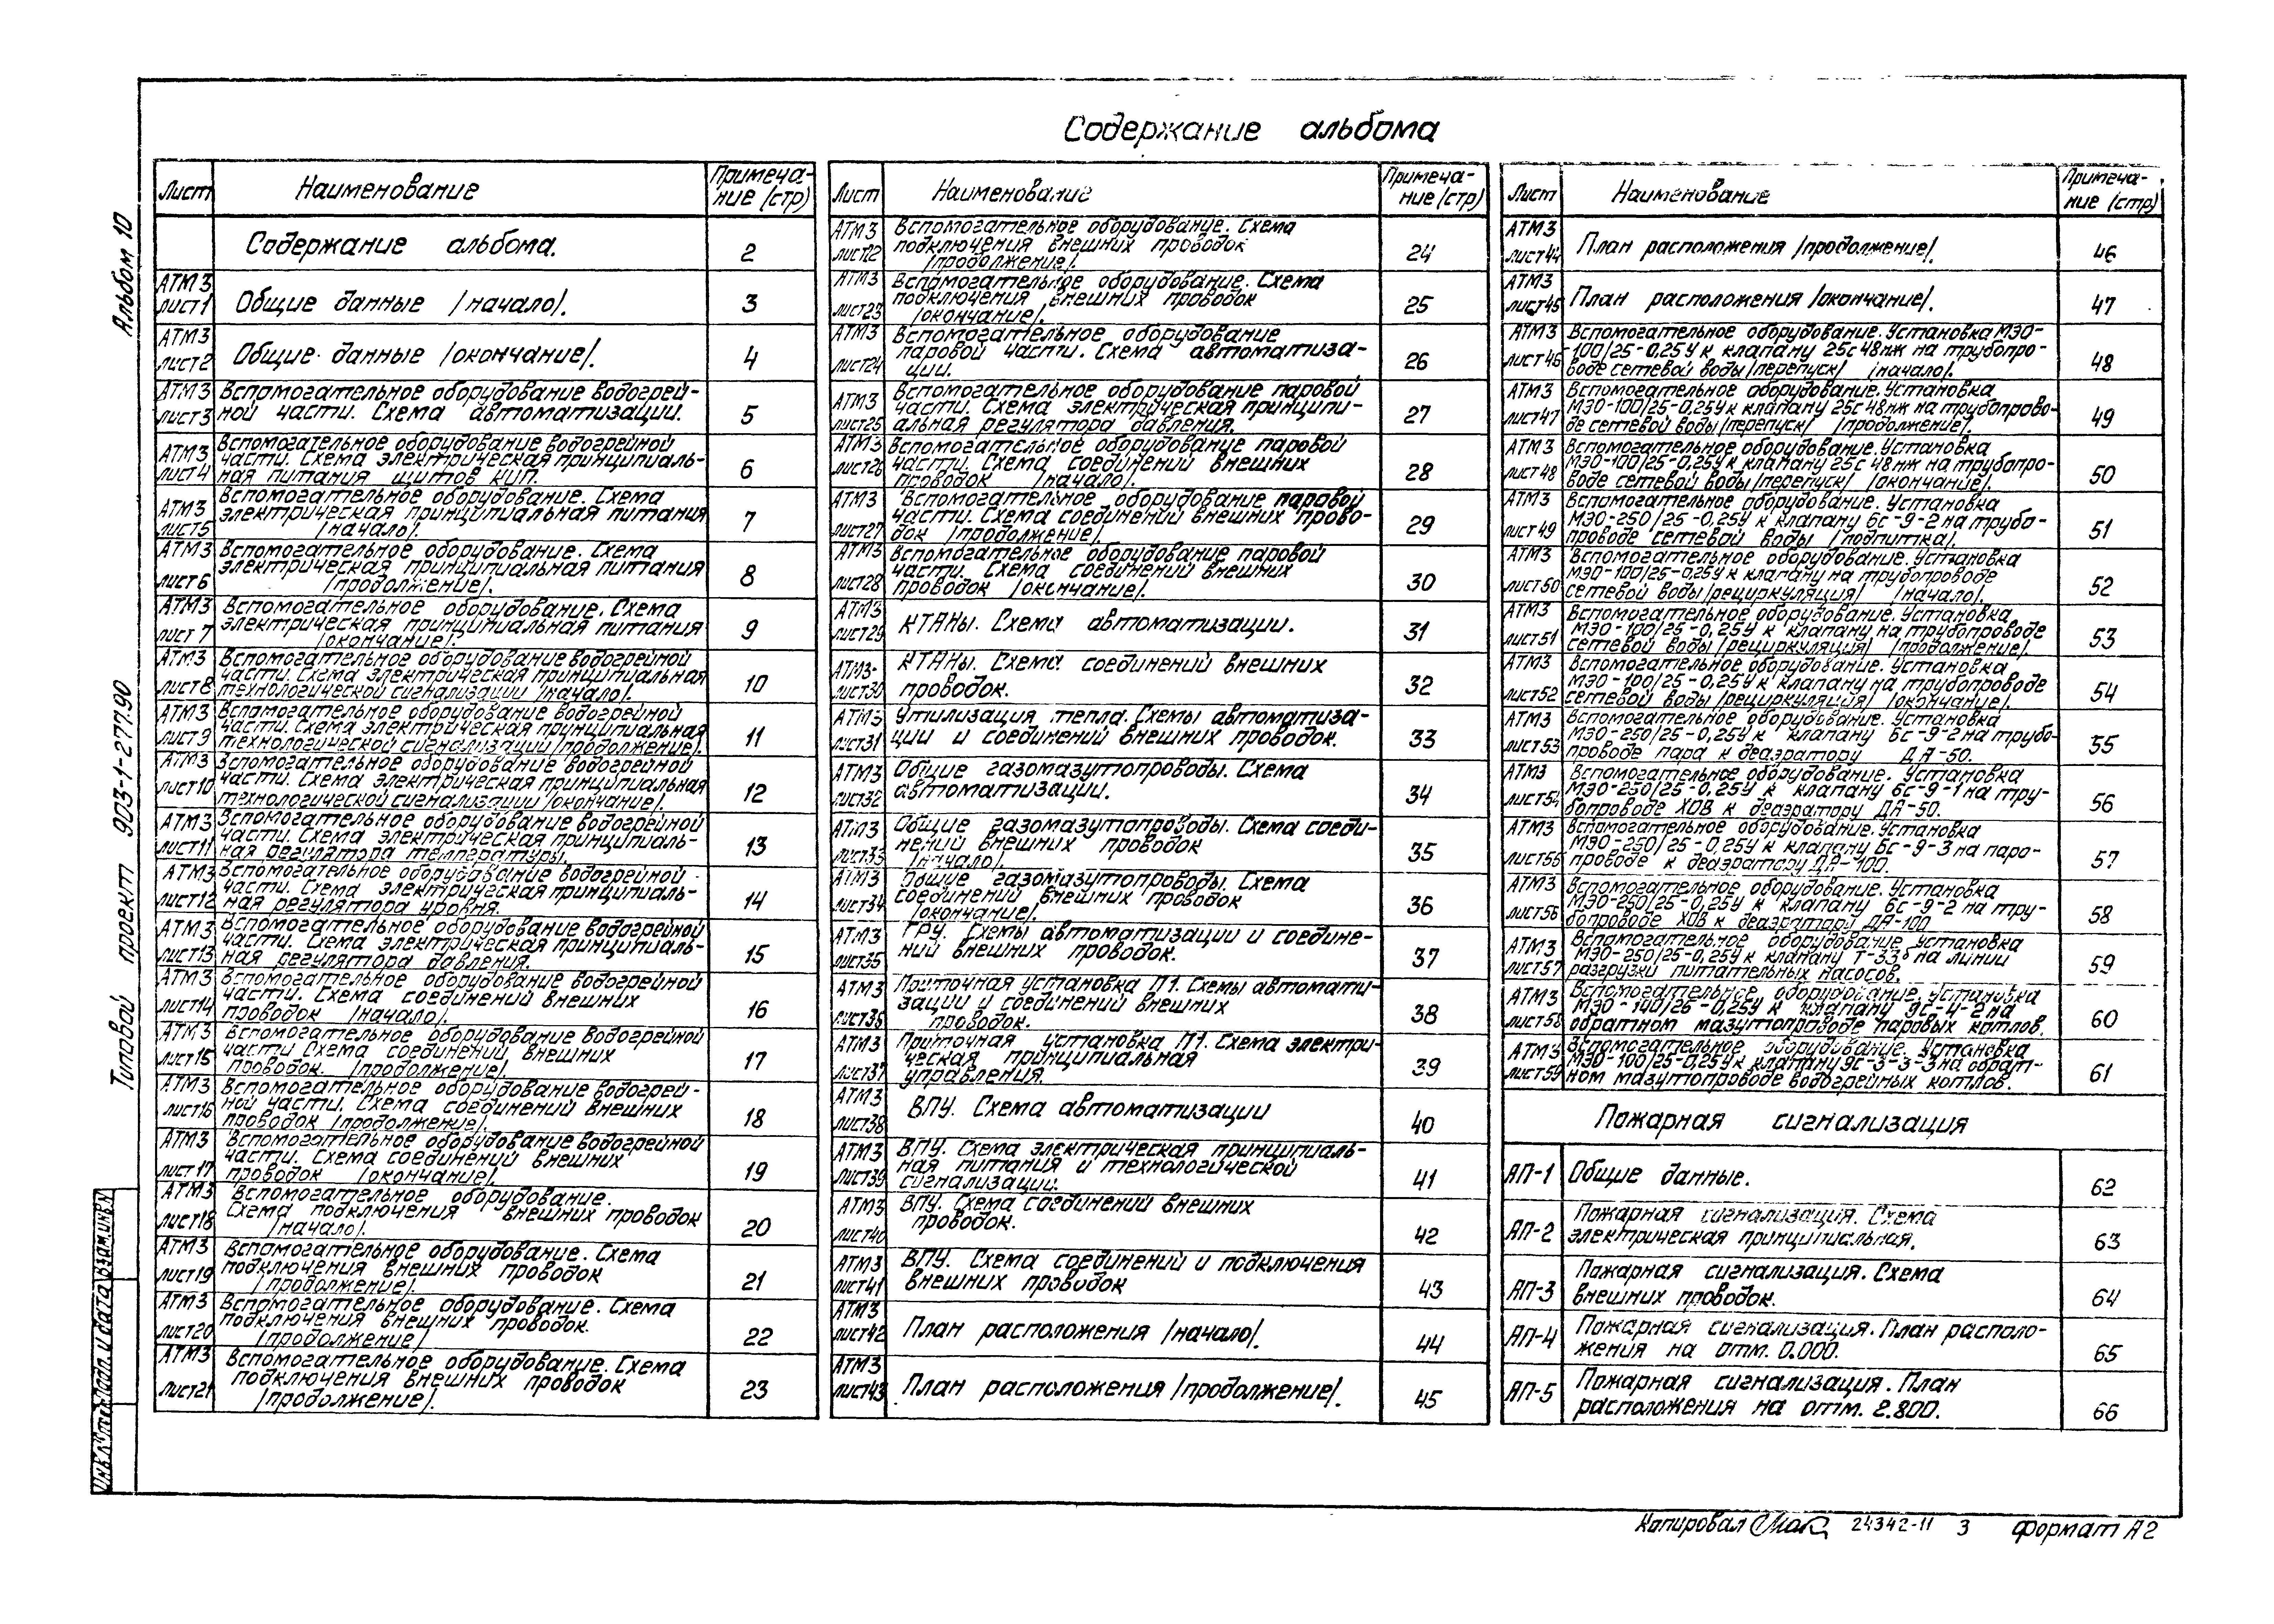 Содержание альбома
Альбом 10
Типовой проект 903-1-277.90
Лист Наименование Примеча-
ние /стр/
Содержание альбома. 2
АТМ3
лист1 Общие данные /начало/. 3
АТМ3
лист2 Общие данные /окончание/. 4
АТМ3 Вспомогательное оборудование водогрей-
лист3 ной части. Схема автоматизации. 5
Вспомогательное оборудование водогрейной
АТМ3 части. Схема электрическая принципиаль-
лист4 ная питания щитов КИП. 6
Вспомогательное оборудование. Схема
АТМ3 электрическая принципиальная питания
лист5 /начало/. 7
АТМ3 Вспомогательное оборудование. Схема
электрическая принципиальная питания
лист6 /продолжение/. 8
АТМ3 Вспомогательное оборудование. Схема
электрическая принципиальная питания
лист 7 /окончание/. 9
АТМ3 Вспомогательное оборудование водогрейной
части. Схема электрическая принципиальная
лист8 технологической сигнализации /начало/. 10
АТМ3 Вспомогательное оборудование водогрейной
части. Схема электрическая принципиальная
лист9 технологической сигнализации /продолжение/. 11
АТМ3 Вспомогательное оборудование водогрейной
части. Схема электрическая принципиальная
лист10 технологической сигнализации /окончание/. 12
АТМ3 Вспомогательное оборудование водогрейной
части. Схема электрическая принципиаль-
лист11 ная регулятора температуры. 13
АТМ3 Вспомогательное оборудование водогрейной
части. Схема электрическая принципиаль-
лист12 ная регулятора уровня. 14
АТМ3 Вспомогательное оборудование водогрейной
части. Схема электрическая принципиаль-
лист13 ная регулятора давления. 15
АТМ3 Вспомогательное оборудование водогрейной
части. Схема соединений внешних
лист14 проводок /начало/. 16
АТМ3 Вспомогательное оборудование водогрейной
части Схема соединений внешних
лист15 проводок. /продолжение/. 17
АТМ3 Вспомогательное оборудование водогрей-
ной части. Схема соединений внешних
лист16 проводок /продолжение/. 18
АТМ3 Вспомогательное оборудование водогрейной
части. Схема соединений внешних
лист17 проводок /окончание/. 19
АТМ3 Вспомогательное оборудование.
Схема подключения внешних проводок
лист18 /начало/. 20
АТМ3 Вспомогательное оборудование. Схема
подключения внешних проводок
лист19 /продолжение/. 21
АТМ3 Вспомогательное оборудование. Схема
подключения внешних проводок.
лист20 /продолжение/ 22
АТМ3 Вспомогательное оборудование. Схема
подключения внешних проводок
лист21 /продолжение/. 23
Лист Наименование Примеча-
ние /стр/
АТМ3 Вспомогательное оборудование. Схема
подключения внешних проводок
лист22 /продолжение/. 24
АТМ3 Вспомогательное оборудование. Схема
подключения внешних проводок
лист23 /окончание/. 25
АТМ3 Вспомогательное оборудование
паровой части. Схема автоматиза-
лист24 ции. 26
АТМ3 Вспомогательное оборудование паровой
части. Схема электрическая принципи-
лист25 альная регулятора давления. 27
АТМ3 Вспомогательное оборудование паровой
части. Схема соединений внешних
лист26 проводок /начало/. 28
АТМ3 Вспомогательное оборудование паровой
части. Схема соединений внешних прово-
лист27 док /продолжение/. 29
АТМ3 Вспомогательное оборудование паровой
части. Схема соединений внешних
лист28 проводок /окончание/. 30
АТМ3
лист29 КТАНы. Схема автоматизации. 31
АТМ3- КТАНы. Схема соединений внешних
лист30 проводок. 32
АТМ3 Утилизация тепла. Схемы автоматиза-
лист31 ции и соединений внешних проводок. 33
АТМ3 Общие газомазутопроводы. Схема
лист32 автоматизации. 34
АТМ3 Общие газомазутопроводы. Схема соеди-
нений внешних проводок
лист33 /начало/. 35
АТМ3 Общие газомазутопроводы. Схема
соединений внешних проводок
лист34 /окончание/. 36
АТМ3 ГРУ. Схемы автоматизации и соедине-
лист35 ний внешних проводок. 37
АТМ3 Приточная установка П1. Схемы автомати-
зации и соединений внешних
лист36 проводок. 38
АТМ3 Приточная установка П1. Схема электри-
ческая принципиальная
лист37 управления. 39
АТМ3
лист38 ВПУ. Схема автоматизации 40
АТМ3 ВПУ. Схема электрическая принципиаль-
ная питания и технологической
лист39 сигнализации. 41
АТМ3 ВПУ. Схема соединений внешних
лист40 проводок. 42
АТМ3 ВПУ. Схема соединений и подключения
лист41 внешних проводок 43
АТМ3
лист42 План расположения /начало/. 44
АТМ3
лист43 План расположения /продолжение/. 45
Лист Наименование Примеча-
ние /стр/
АТМ3
лист44 План расположения /продолжение/. 46
АТМ3
лист45 План расположения /окончание/. 47
АТМ3 Вспомогательное оборудование. Установка МЭО-
лист46 -100/25-0,25У к клапану 25с48нж на трубопро-
воде сетевой воды /перепуск/ /начало/. 48
АТМ3 Вспомогательное оборудование. Установка
лист47 МЭО-100/25-0,25У к клапану 25с48нж на трубопрово-
де сетевой воды /перепуск/ /продолжение/. 49
АТМ3 Вспомогательное оборудование. Установка
лист48 МЭО-100/25-0,25У к клапану 25с48нж на трубопро-
воде сетевой воды /перепуск/ /окончание/. 50
АТМ3 Вспомогательное оборудование. Установка
лист49 МЭО-250/25-0,25У к клапану 6с-9-2 на трубо-
проводе сетевой воды /подпитка/. 51
АТМ3 Вспомогательное оборудование. Установка
МЭО-100/25-0,25У к клапану на трубопроводе
лист50 сетевой воды /рециркуляция/ /начало/. 52
АТМ3 Вспомогательное оборудование. Установка
лист51 МЭО-100/25-0,25У к клапану на трубопроводе
сетевой воды /рециркуляция/ /продолжение/. 53
АТМ3 Вспомогательное оборудование. Установка
лист52 МЭО-100/25-0,25У к клапану на трубопроводе
сетевой воды /рециркуляция/ /окончание/. 54
АТМ3 Вспомогательное оборудование. Установка
лист53 МЭО-250/25-0,25У к клапану 6с-9-2 на трубо-
проводе пара к деаэратору ДА-50. 55
АТМ3 Вспомогательное оборудование. Установка
лист54 МЭО-250/25-0,25У к клапану 6с-9-1 на тру-
бопроводе ХОВ к деаэратору ДА-50. 56
АТМ3 Вспомогательное оборудование. Установка
лист55 МЭО-250/25-0,25У к клапану 6с-9-3 на паро-
проводе к деаэратору ДА-100. 57
АТМ3 Вспомогательное оборудование. Установка
лист56 МЭО-250/25-0,25У к клапану 6с-9-2 на тру-
бопроводе ХОВ к деаэратору ДА-100 58
АТМ3 Вспомогательное оборудование. Установка
лист57 МЭО-250/25-0,25У к клапану на линии
разгрузки питательных насосов. 59
АТМ3 Вспомогательное оборудование. Установка
лист58 0,25У к клапану 9с-4-2 на
обратном мазутопроводе паровых котлов. 60
АТМ3 Вспомогательное оборудование. Установка
лист59 МЭО-100/25-0,25У к клапану 9с-3-3-3 на обрат-
ном мазутопроводе водогрейных котлов. 61
Пожарная сигнализация
АП-1 Общие данные. 62
АП-2 Пожарная сигнализация. Схема
электрическая принципиальная. 63
АП-3 Пожарная сигнализация. Схема
внешних проводок. 64
АП-4 Пожарная сигнализация. План располо-
жения на отм. 0.000. 65
АП-5 Пожарная сигнализация. План
расположения на отм. 2.800. 66
Взам.инв.№
Подп. и дата
Копировал 24342-11 3 Формат А2